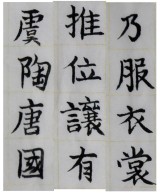 乃服衣裳
推位讓國
有虞陶唐